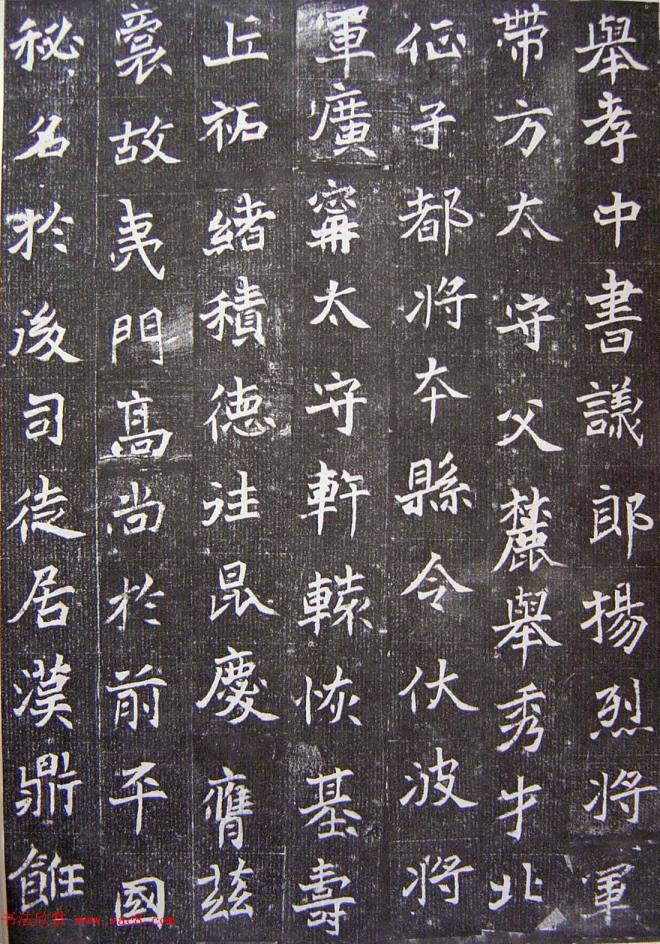 舉孝中書議郎揚烈將軍
帶方太守父麓舉秀才北
征子都將夲縣令伏波將
軍廣甯太守軒轅恢基壽
丘祏緒積德詿昆慶膺茲
裔故夷門高尚於前平國
秘名於後司徒居漢鼎飪
书法欣赏 www.yac8.com